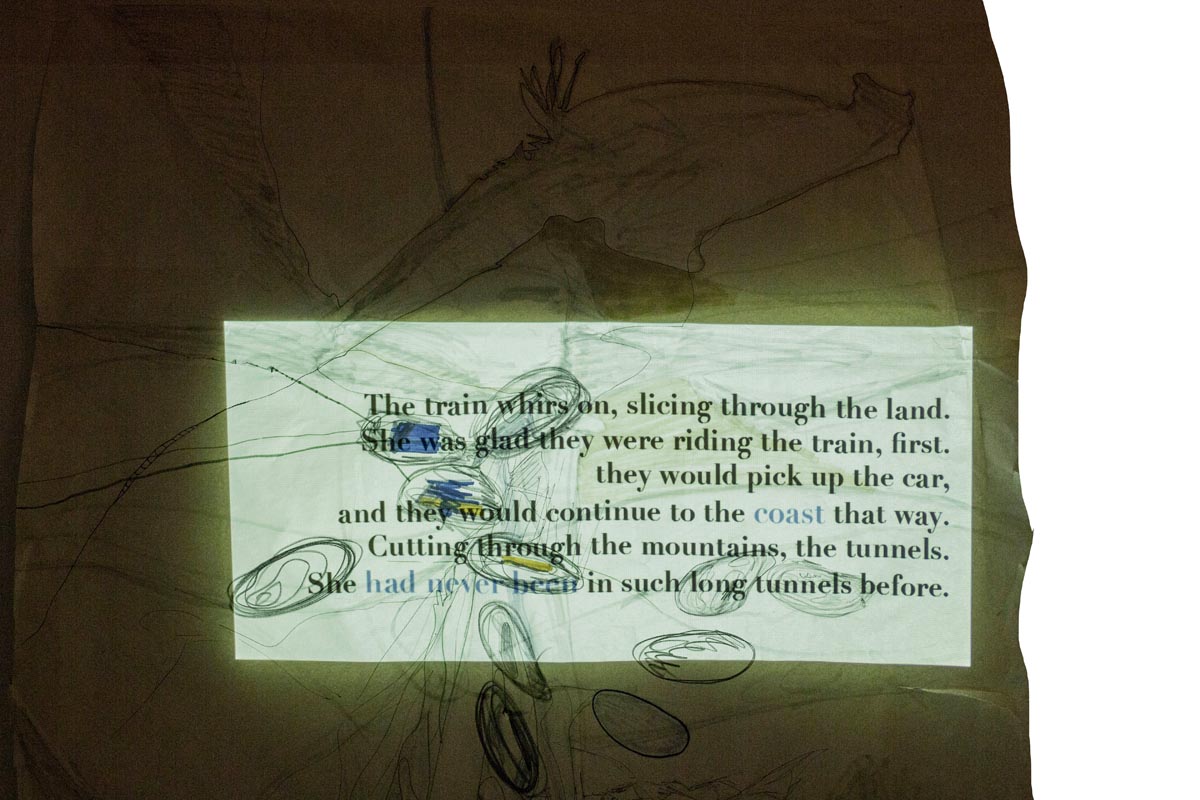 The train whirs on, slicing through the land.
She was glad they were riding the train, first.
they would pick up the car,
and they would continue to the coast that way.
Cutting through the mountains, the tunnels.
She had never been in such long tunnels before.